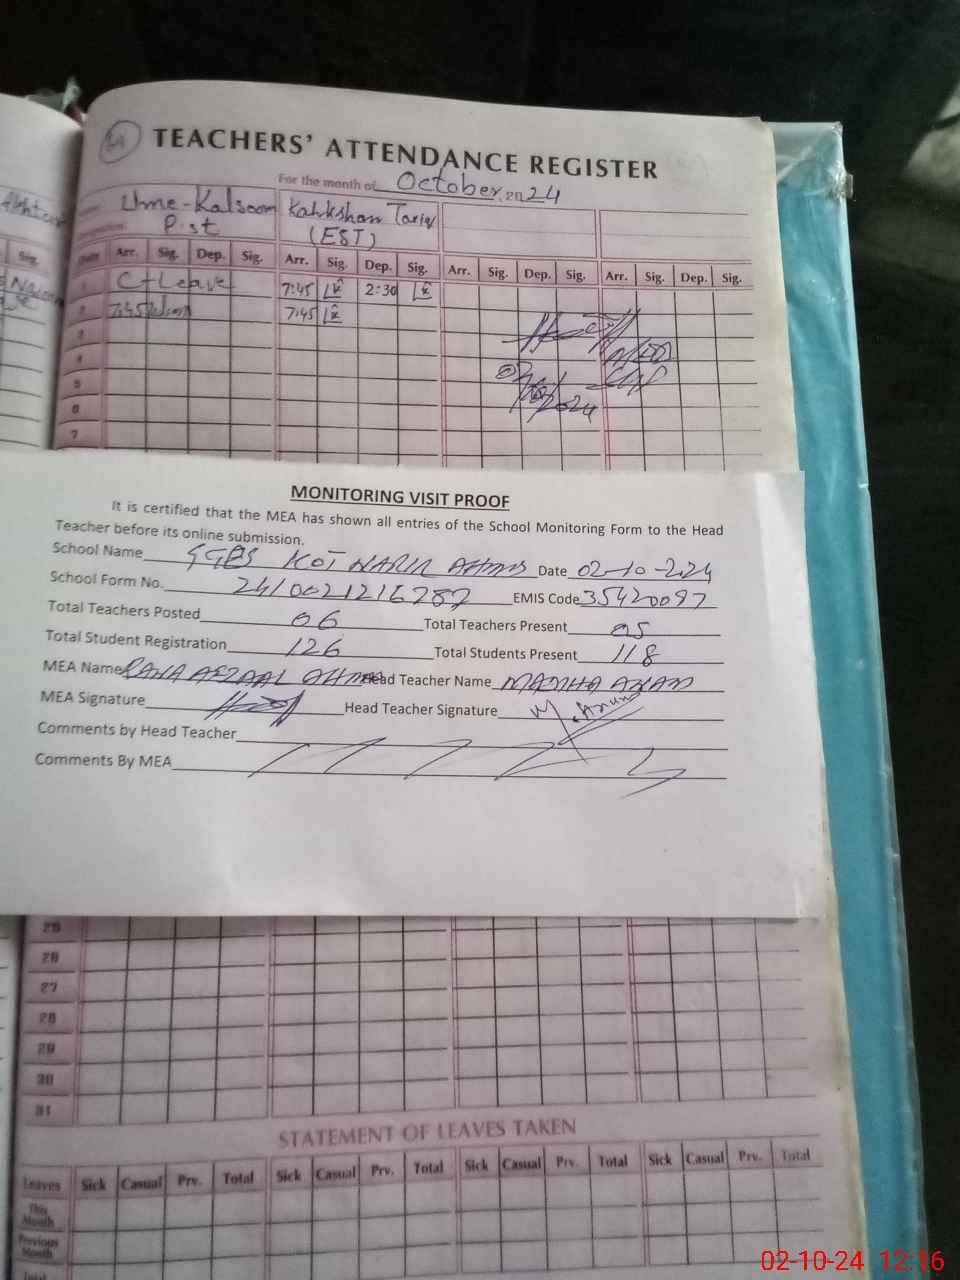 TEACHERS' ATTENDANCE REGISTER
For the month of October, 2024
Ume-Kalsoom Kahkshan Tariq
P.st (EST)
Date Arr. Sig. Dep. Sig. Arr. Sig. Dep. Sig. Arr. Sig. Dep. Sig. Arr. Sig. Dep. Sig.
Sig.
1 C-Leave 7:45 2:30
2 7:45 7:45
3
4
5
6
7
MONITORING VISIT PROOF
It is certified that the MEA has shown all entries of the School Monitoring Form to the Head
Teacher before its online submission.
School Name GGPS KOT Date 02-10-2024
School Form No. 2410021216787 EMIS Code 35420097
Total Teachers Posted 06 Total Teachers Present 05
Total Student Registration 126 Total Students Present 118
MEA Name RANA AFZAAL AHMAD Head Teacher Name MADIHA
MEA Signature Head Teacher Signature
Comments by Head Teacher
Comments By MEA
25
26
27
28
29
30
31
STATEMENT OF LEAVES TAKEN
Leaves Sick Casual Prv. Total Sick Casual Prv. Total Sick Casual Prv. Total Sick Casual Prv. Total
This Month
Previous Month
Total
02-10-24 12:16